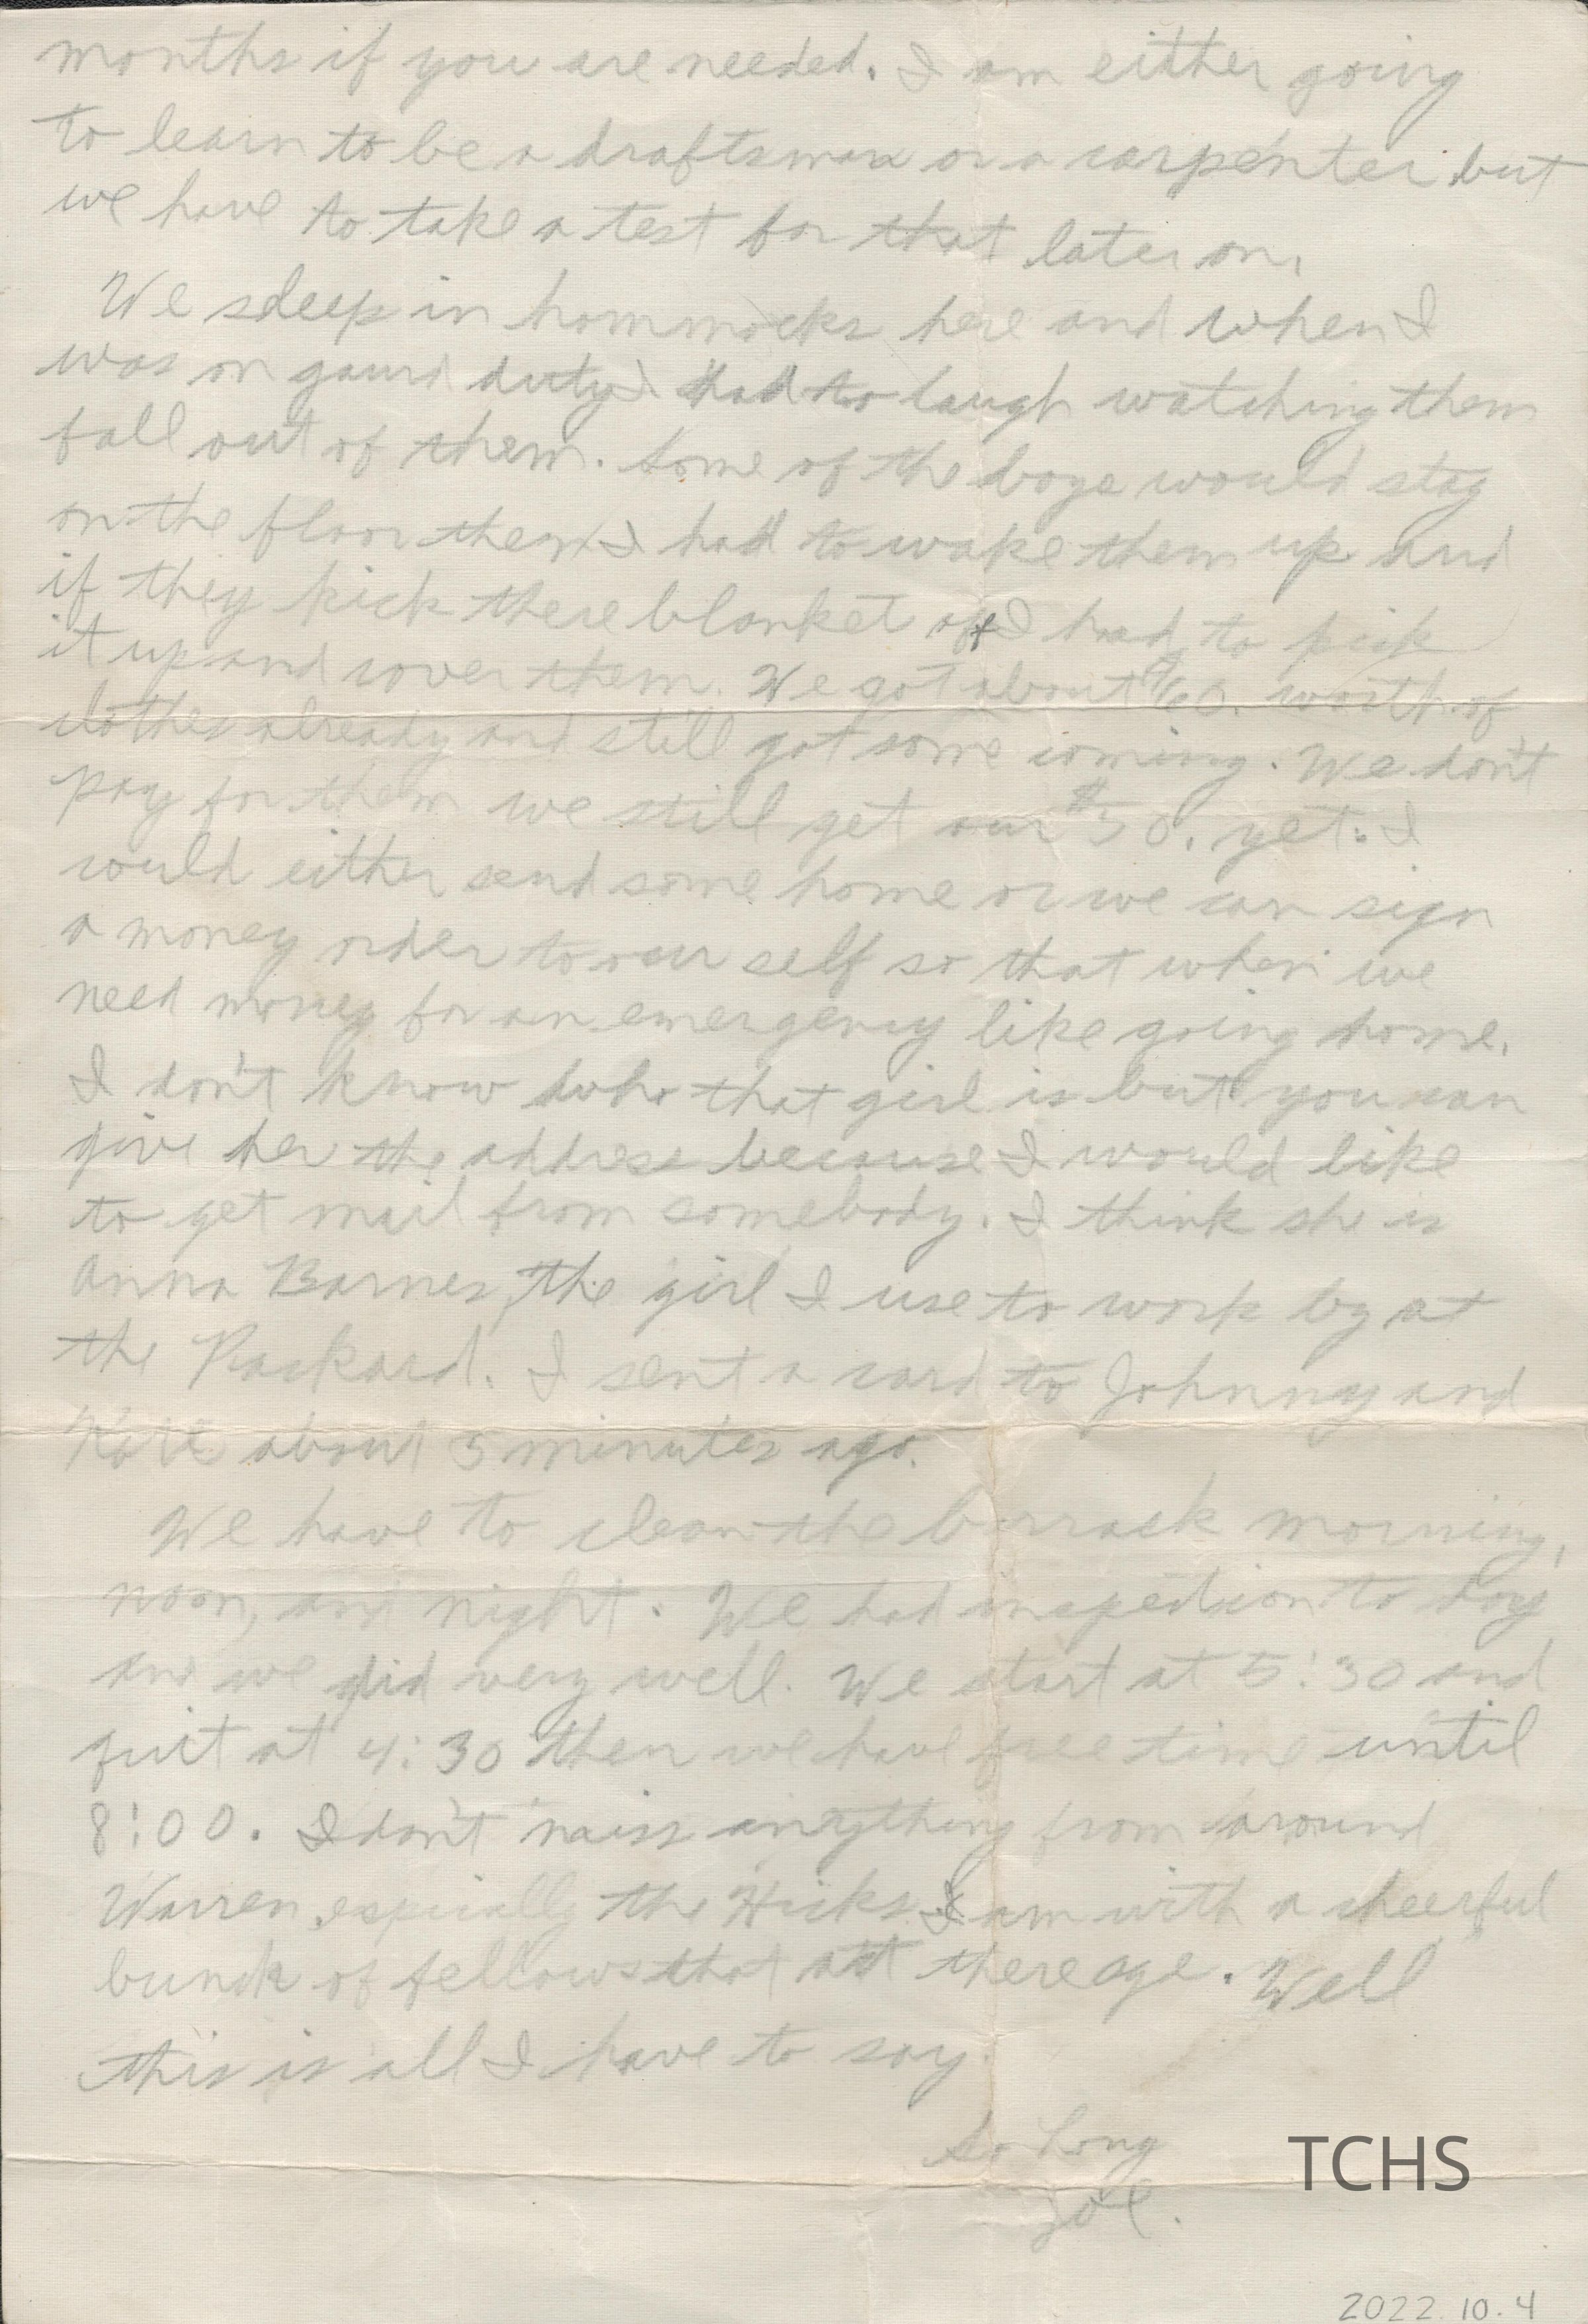 months if you are needed. I am either going
to learn to be a draftsman or a carpenter but
we have to take a test for that later on,
We sleep in hommocks here and when I
was on gaurd duty I had to laugh watching them
fall out of them. Some of the boys would stay
on the floor then I had to wake them up and
if they kick there blanket off I had to pick
it up and cover them. We got about $60. worth of
clothes already and still got some coming. We don't
pay for them we still get our $50. yet. I
could either send some home or we can sign
a money order to our self so that when we
need money for an emergency like going home.
I don't know who that girl is but you can
give her the address because I would like
to get mail from somebody. I think she is
Anna Barnes, the girl I use to work by at
the Packard. I sent a card to Johnny and
Kate about 5 minutes ago.
We have to clean the barrack morning,
noon, and night. We had inspection to day
and we did very well. We start at 5:30 and
quit at 4:30 then we have free time until
8:00. I don't miss anything from around
Warren espically the Hicks. I am with a cheerful
bunch of fellows that act there age. Well
this is all I have to say.
So Long
Joe.
TCHS
2022.10.4